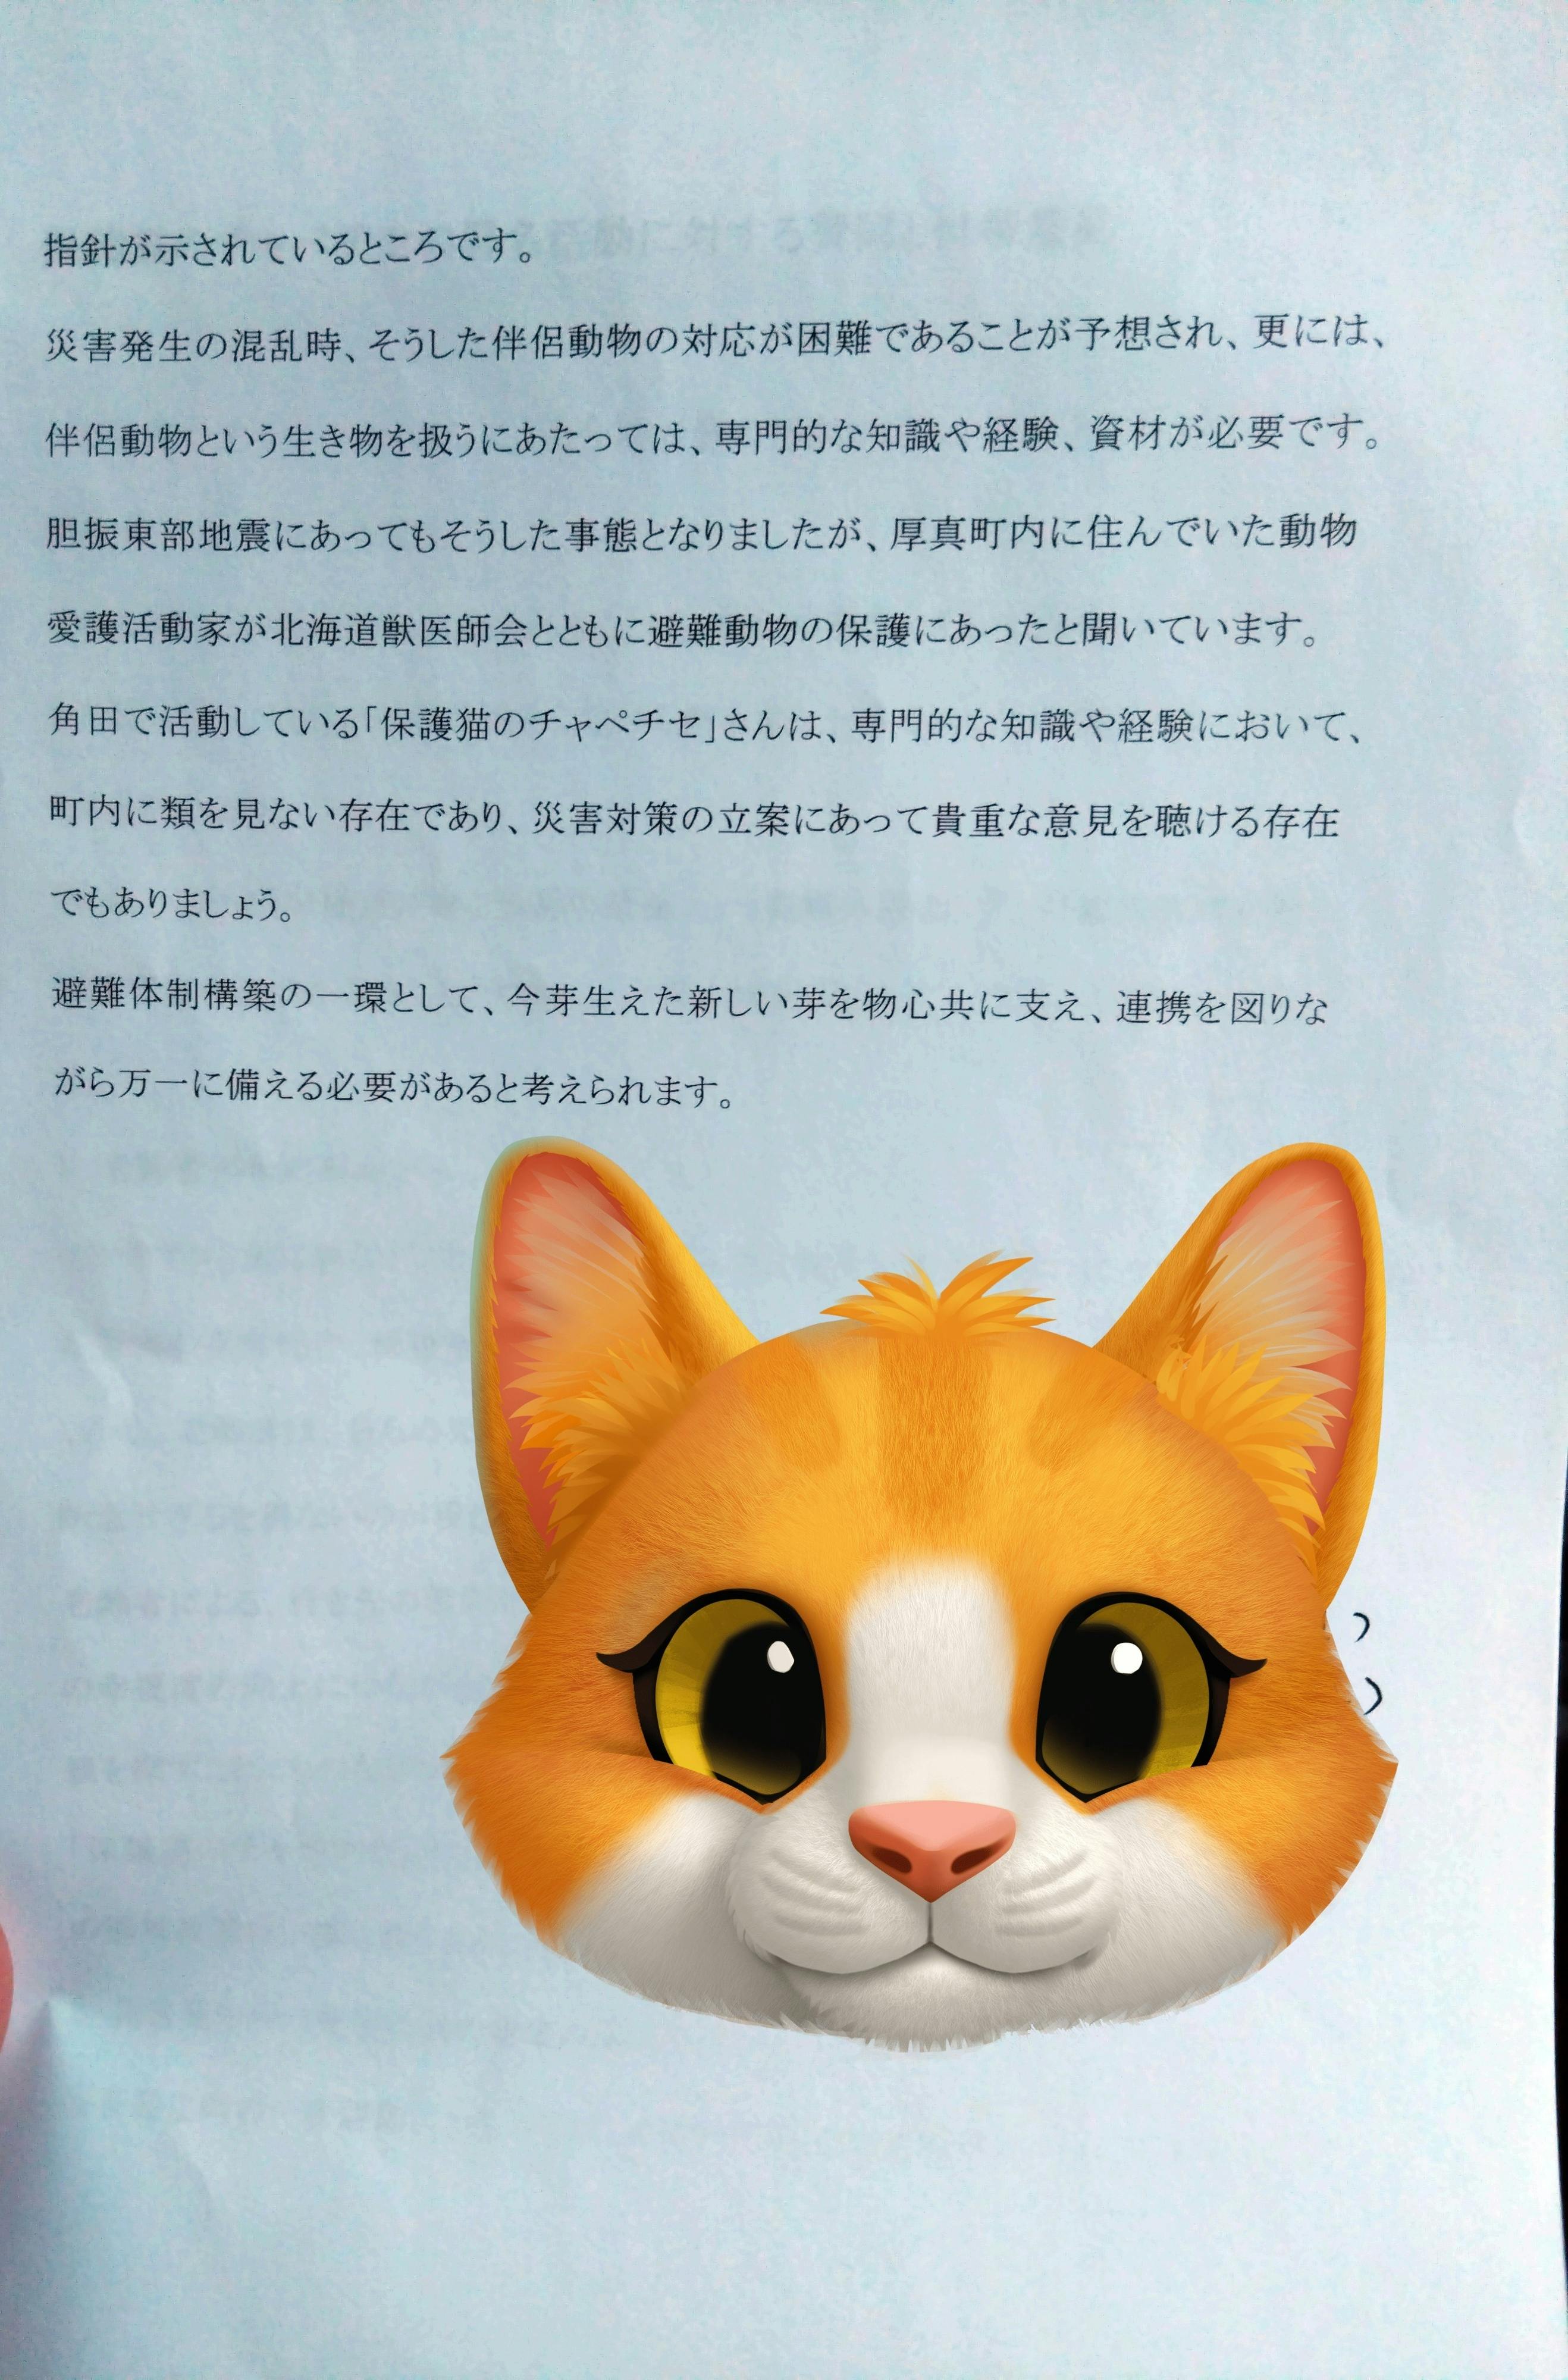 指針が示されているところです。
災害発生の混乱時、そうした伴侶動物の対応が困難であることが予想され、更には、
伴侶動物という生き物を扱うにあたっては、専門的な知識や経験、資材が必要です。
胆振東部地震にあってもそうした事態となりましたが、厚真町内に住んでいた動物
愛護活動家が北海道獣医師会とともに避難動物の保護にあったと聞いています。
角田で活動している「保護猫のチャペチセ」さんは、専門的な知識や経験において、
町内に類を見ない存在であり、災害対策の立案にあって貴重な意見を聴ける存在
でもありましょう。
避難体制構築の一環として、今芽生えた新しい芽を物心共に支え、連携を図りな
がら万一に備える必要があると考えられます。